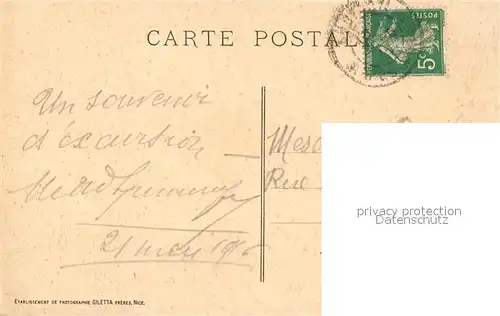 CARTE POSTALE
POSTES
5c
Un souvenir
d'excursion
21 mai 1916
Mes
Rue
privacy protection
Datenschutz
ETABLISSEMENT DE PHOTOGRAPHIE GILETTA FRÈRES, NICE.